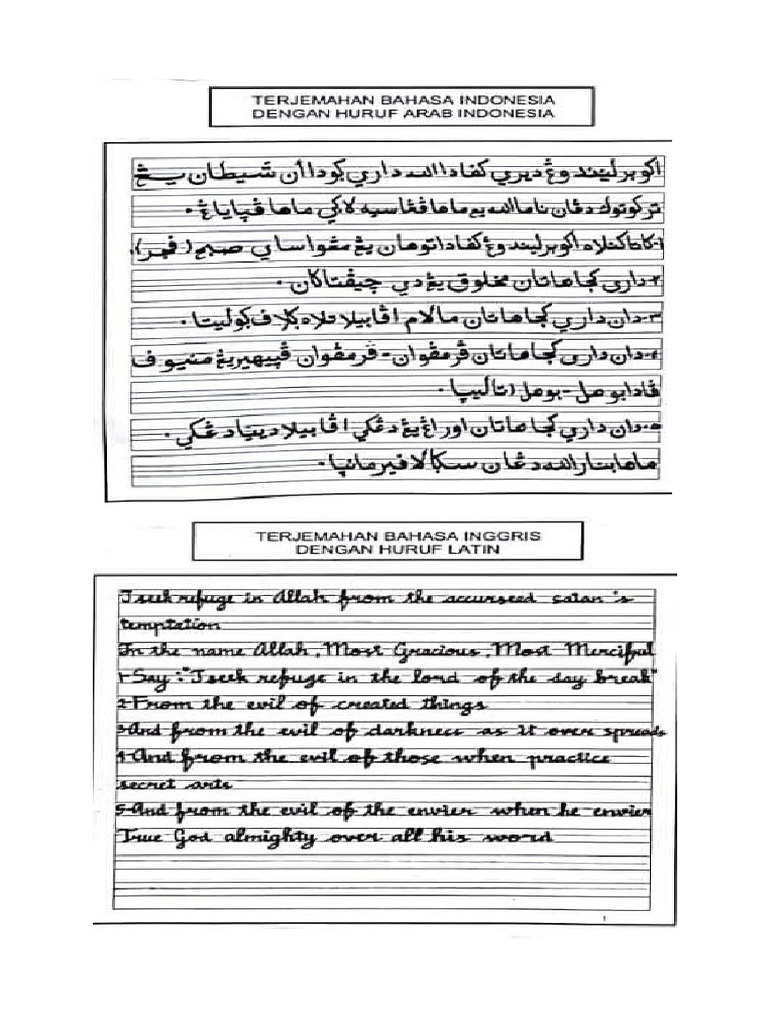 TERJEMAHAN BAHASA INDONESIA
DENGAN HURUF ARAB INDONESIA
اكو برليندوڠ ديري كفادا الله داري ݢودا أن شيطان يڠ
تركوتوك دڠان ناما الله يڠ ماها ڤڠاسيه لاݢي ماها ڤپاياڠ.
١-كاتاكنلاه اكو برليندوڠ كفادا توهان يڠ مڠواساي صبح (فجر).
٢-داري كجاهاتان مخلوق يڠ دي چيڤتاكان.
٣-دان داري كجاهاتان مالام اڤابيلا تلاه ݢلاف ݢوليتا.
٤-دان داري كجاهاتان ڤرمڤوان-ڤرمڤوان ڤپيهير يڠ منيوف
ڤادا بوهل-بوهل تاليپا.
٥-دان داري كجاهاتان اوراڠ يڠ دڠكي اڤابيلا دڠكي.
ماها بنار الله دڠان سݢالا فيرمانپا.
TERJEMAHAN BAHASA INGGRIS
DENGAN HURUF LATIN
I seek refuge in Allah from the accurseed satan's
temptation
In the name Allah, Most Gracious, Most Merciful
1-Say :"I seek refuge in the lord of the day break"
2-From the evil of created things
3-And from the evil of darkness as it over spreads
4-And from the evil of those when practice
secret arts
5-And from the evil of the envier when he envier
True God almighty over all his word
1